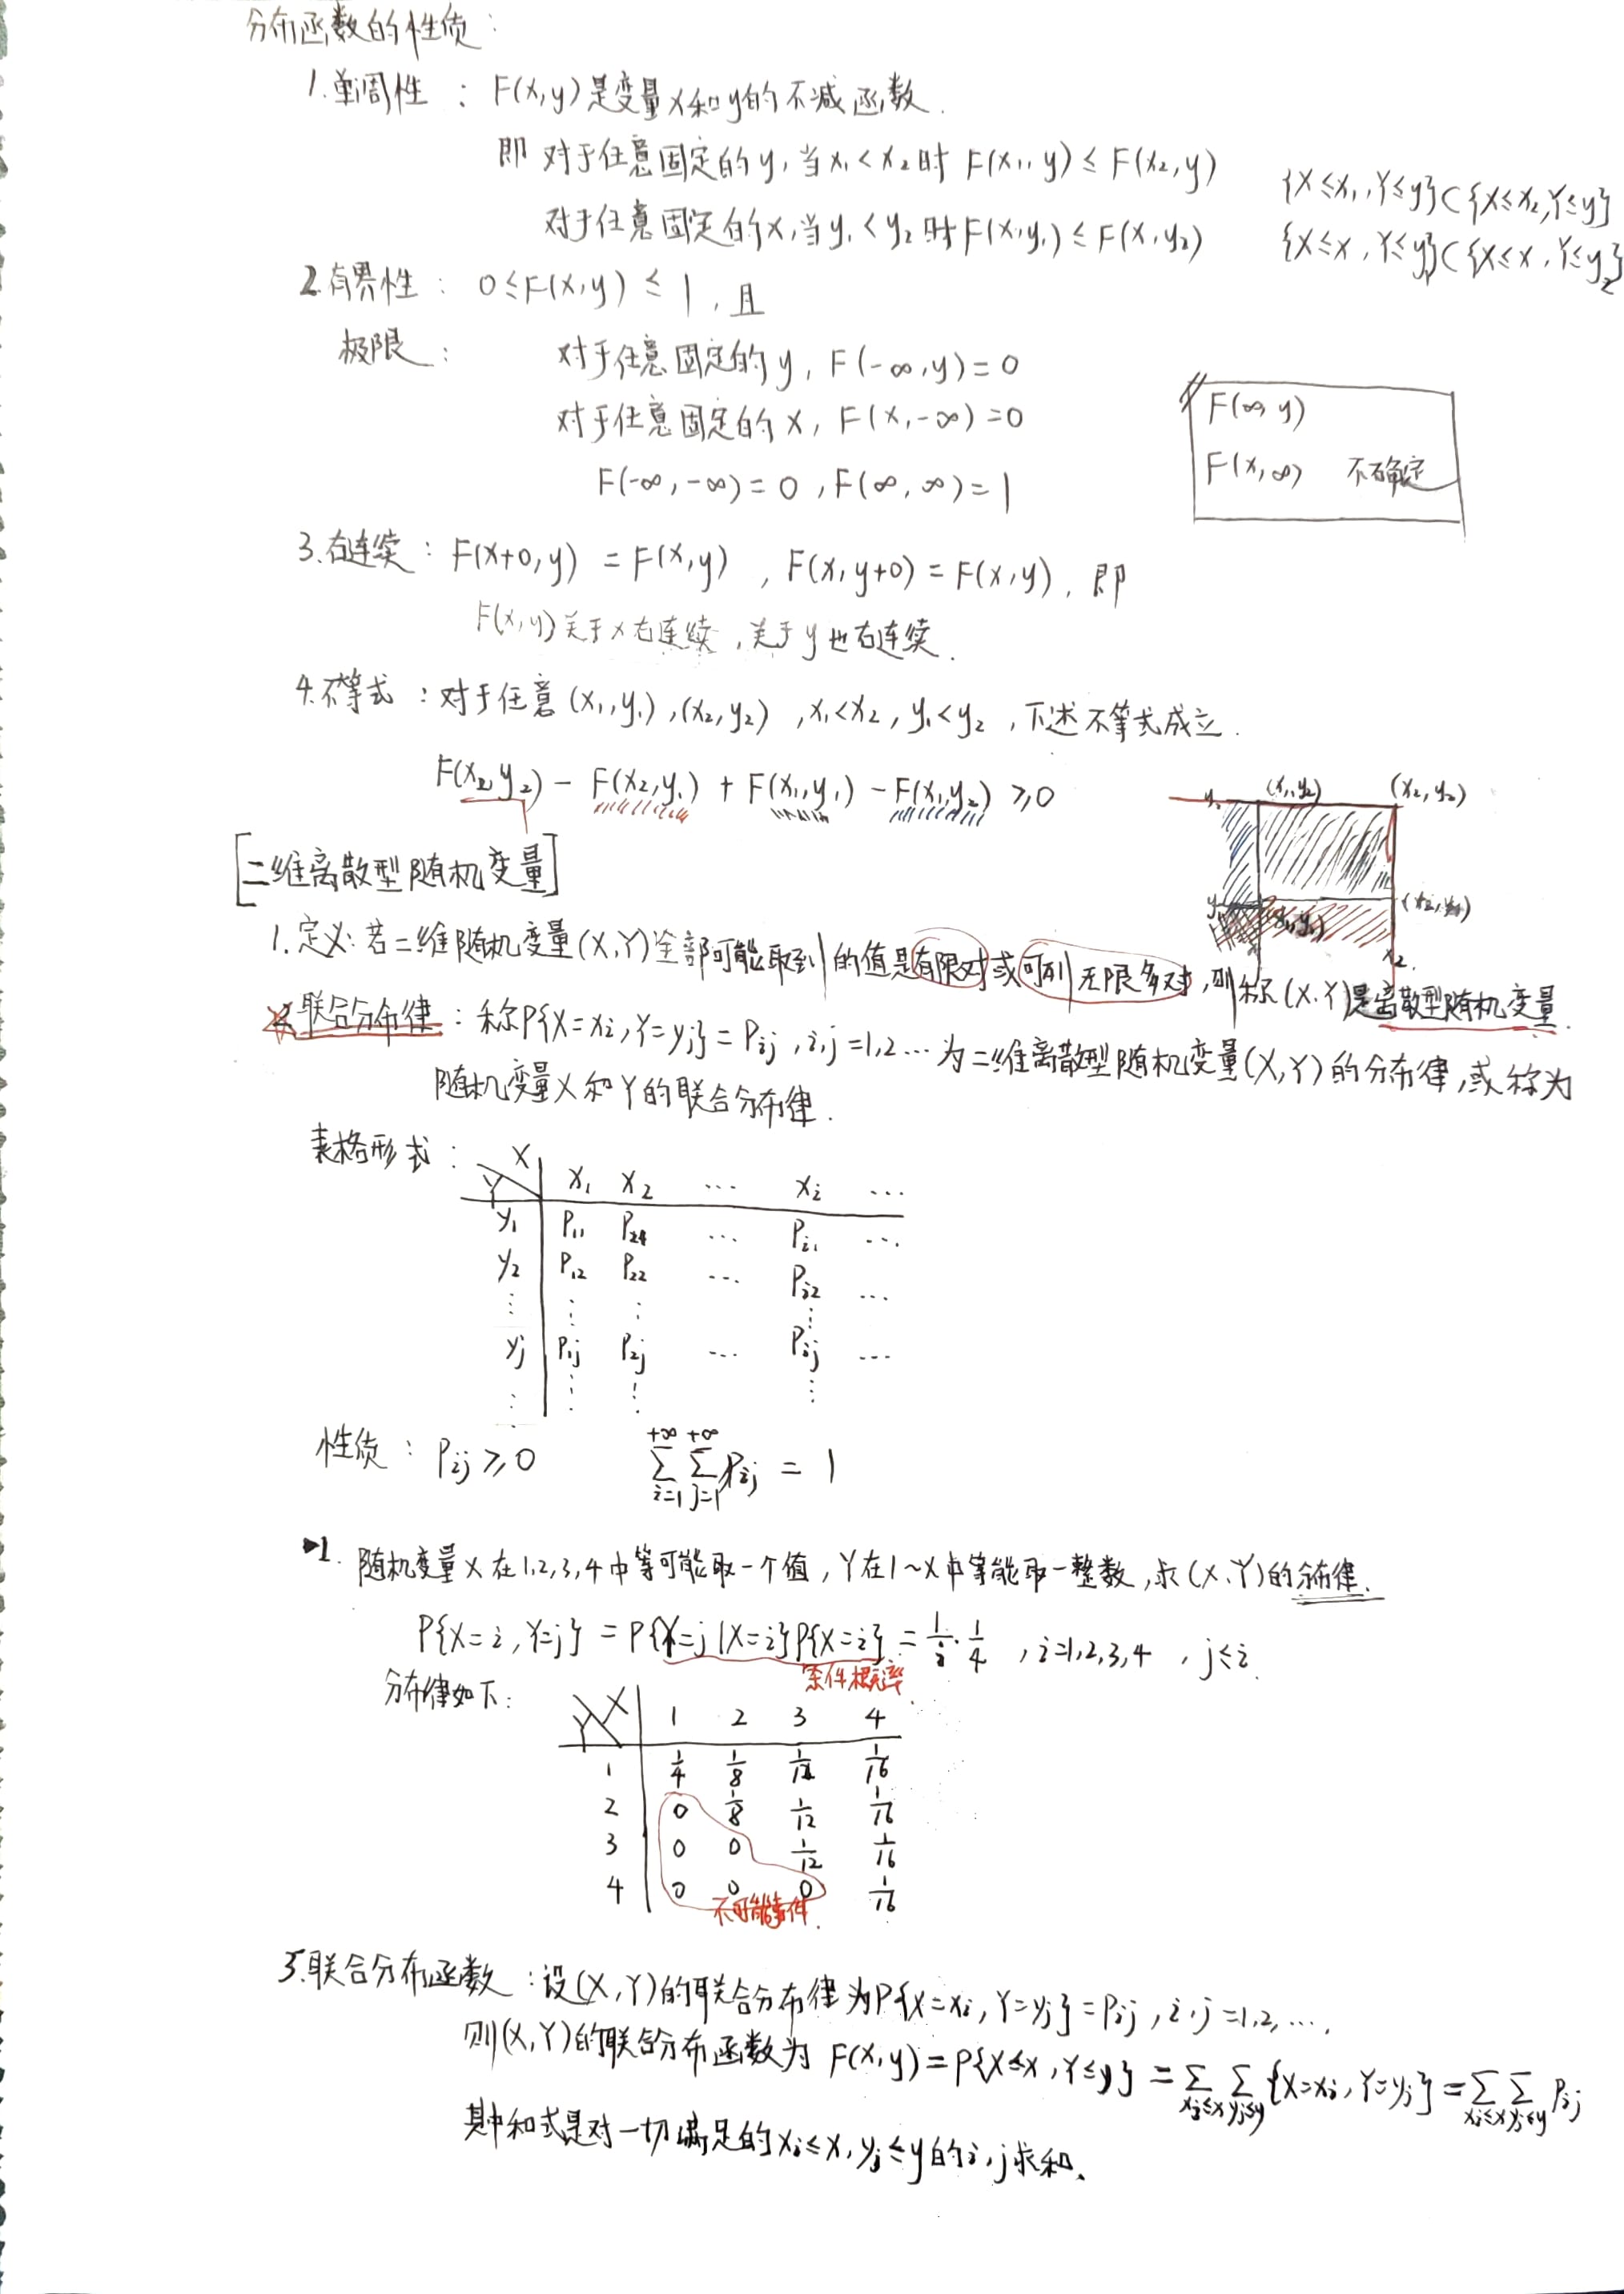 分布函数的性质:
1.单调性: F(x,y)是变量x和y的不减函数.
即 对于任意固定的y,当x₁<x₂时 F(x₁,y)≤F(x₂,y) {X≤x₁,Y≤y}⊂{X≤x₂,Y≤y}
对于任意固定的x,当y₁<y₂时F(x,y₁)≤F(x,y₂) {X≤x,Y≤y₁}⊂{X≤x,Y≤y₂}
2.有界性: 0≤F(x,y)≤1,且
极限: 对于任意固定的y, F(-∞,y)=0
对于任意固定的x, F(x,-∞)=0
F(-∞,-∞)=0 ,F(∞,∞)=1
F(∞,y)
F(x,∞) 不确定
3.右连续: F(x+0,y)=F(x,y) , F(x,y+0)=F(x,y), 即
F(x,y)关于x右连续,关于y也右连续.
4.不等式:对于任意(x₁,y₁),(x₂,y₂),x₁<x₂,y₁<y₂,下述不等式成立.
F(x₂,y₂)-F(x₂,y₁)+F(x₁,y₁)-F(x₁,y₂)≥0
y₂ (x₁,y₂) (x₂,y₂)
(x₁,y₁)
x₂
[二维离散型随机变量]
1.定义:若二维随机变量(X,Y)全部可能取到的值是有限对或可列无限多对,则称(X,Y)是离散型随机变量.
2.联合分布律:称P{X=xi,Y=yj}=Pij,i,j=1,2…为二维离散型随机变量(X,Y)的分布律,或称为
随机变量X和Y的联合分布律.
表格形式:
Y X x₁ x₂ … xi …
y₁ P₁₁ P₂₁ … Pi₁ …
y₂ P₁₂ P₂₂ … Pi₂ …
⋮ ⋮ ⋮ ⋮
yj P₁j P₂j … Pij …
⋮ ⋮ ⋮ ⋮
性质: Pij≥0 +∞∑i=1 +∞∑j=1 Pij = 1
▶1. 随机变量X在1,2,3,4中等可能取一个值,Y在1~X中等能取一整数,求(X,Y)的分布律.
P{X=i,Y=j}=P{Y=j|X=i}P{X=i}=1/i·1/4 ,i=1,2,3,4 ,j≤i.
条件概率
分布律如下:
Y X 1 2 3 4
1 1/4 1/8 1/12 1/16
2 0 1/8 1/12 1/16
3 0 0 1/12 1/16
4 0 0 0 1/16
不可能事件.
3.联合分布函数:设(X,Y)的联合分布律为P{X=xi,Y=yj}=Pij,i,j=1,2,….
则(X,Y)的联合分布函数为 F(x,y)=P{X≤x,Y≤y}=∑xi≤x ∑yj≤y {X=xi,Y=yj}=∑xi≤x ∑yj≤y Pij
其中和式是对一切满足的xi≤x,yj≤y的i,j求和.